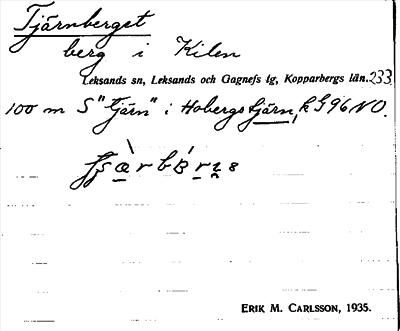 Tjärnberget
berg i Kilen
Leksands sn, Leksands och Gagnefs tg, Kopparbergs län. 233
100 m S "tjärn" i Hobergstjärn, k G96 NO.
ERIK M. CARLSSON, 1935.